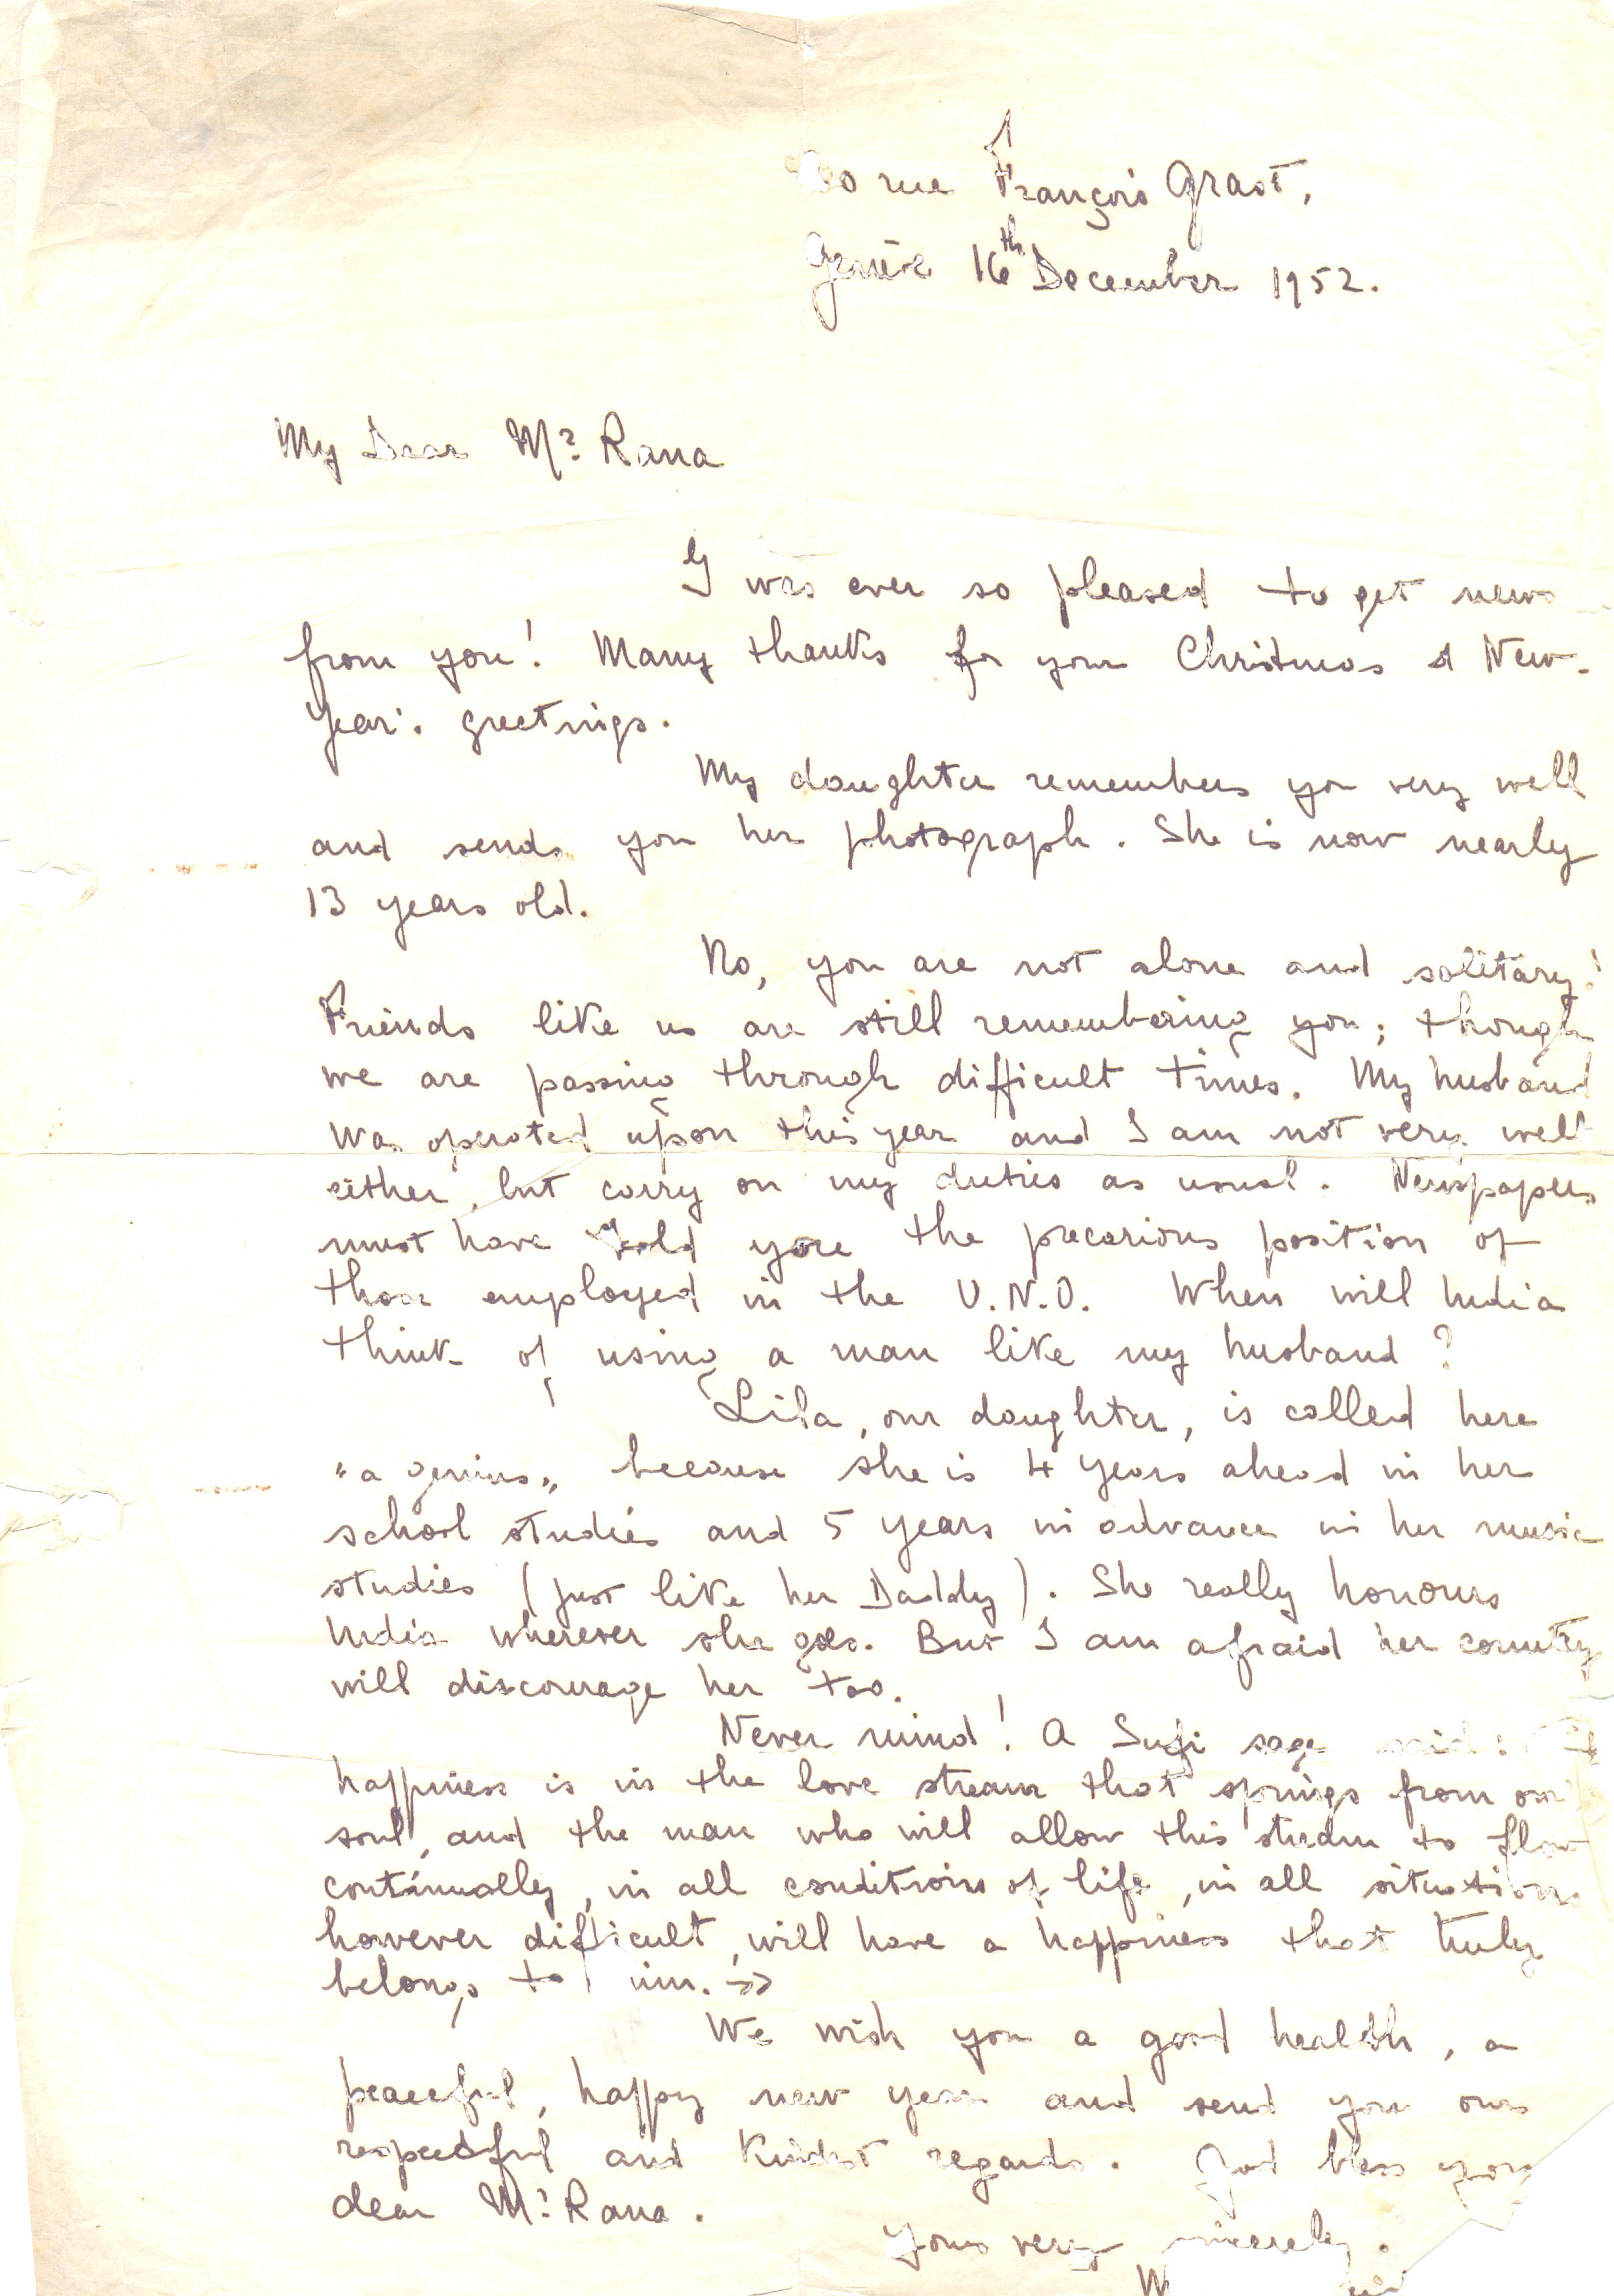 rue François Grast,
Genève 16th December 1952.
My Dear Mr Rana
I was ever so pleased to get news
from you! Many thanks for your Christmas & New-
Year's greetings.
My daughter remembers you very well
and sends you her photograph. She is now nearly
13 years old.
No, you are not alone and solitary!
Friends like us are still remembering you; though
we are passing through difficult times. My husband
was operated upon this year and I am not very well
either, but carry on my duties as usual. Newspapers
must have told you the precarious position of
those employed in the U.N.O. When will India
think of using a man like my husband ?
Lila, our daughter, is called here
"a genius" because she is 4 years ahead in her
school studies and 5 years in advance in her music
studies (just like her Daddy). She really honours
India wherever she goes. But I am afraid her country
will discourage her too.
Never mind! A Sufi sage said:
happiness is in the love stream that springs from our
soul, and the man who will allow this stream to flow
continually, in all conditions of life, in all situations
however difficult, will have a happiness that truly
belongs to him. »
We wish you a good health, a
peaceful, happy new year and send you our
respectful and kindest regards. God bless you
dear Mr Rana.
Yours very sincerely.